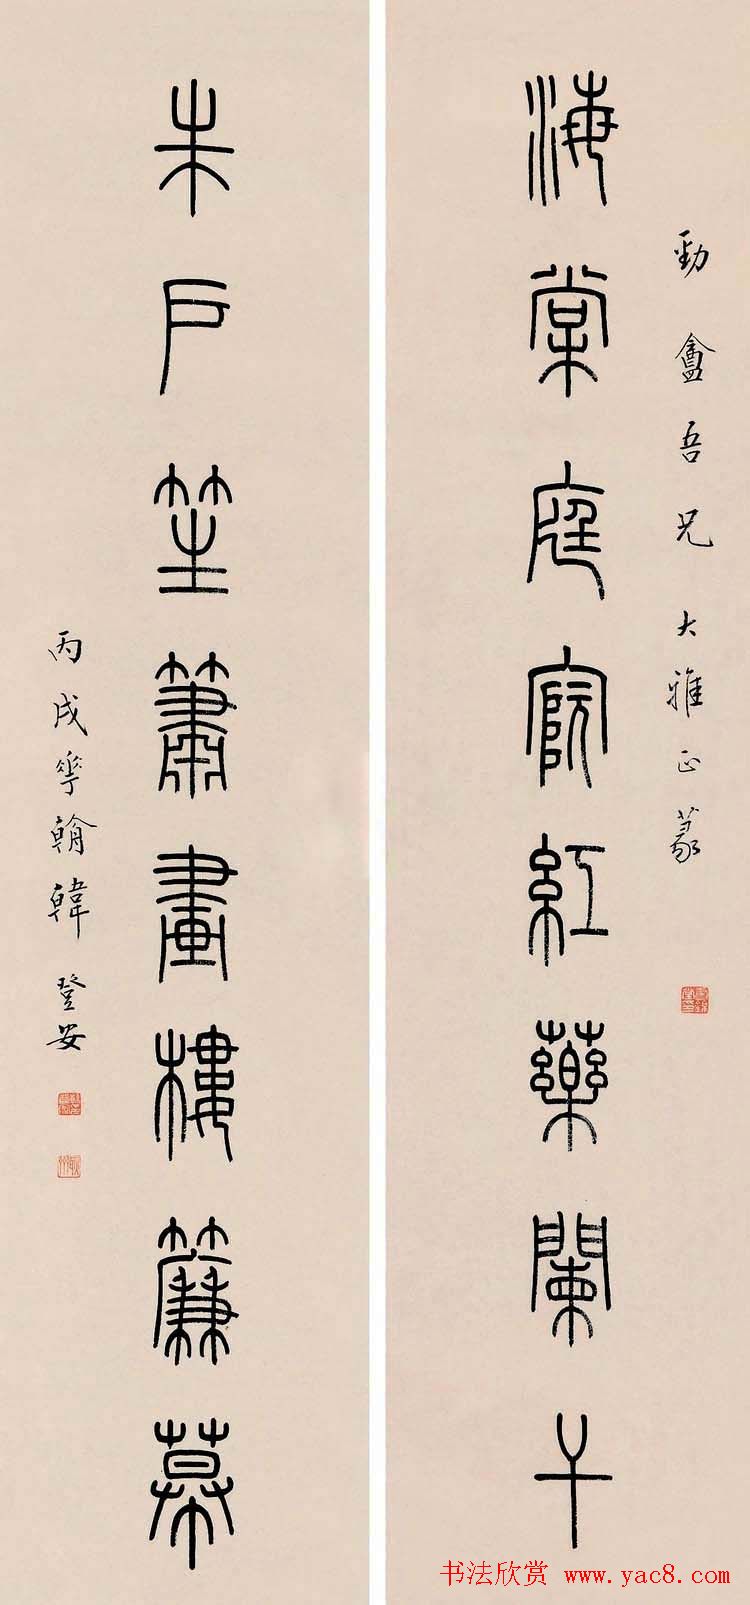 勁盦吾兄大雅正篆
海棠庭院紅藥闌干
朱戶笙簫畫樓簾幕
丙戌華朝韓登安
书法欣赏 www.yac8.com